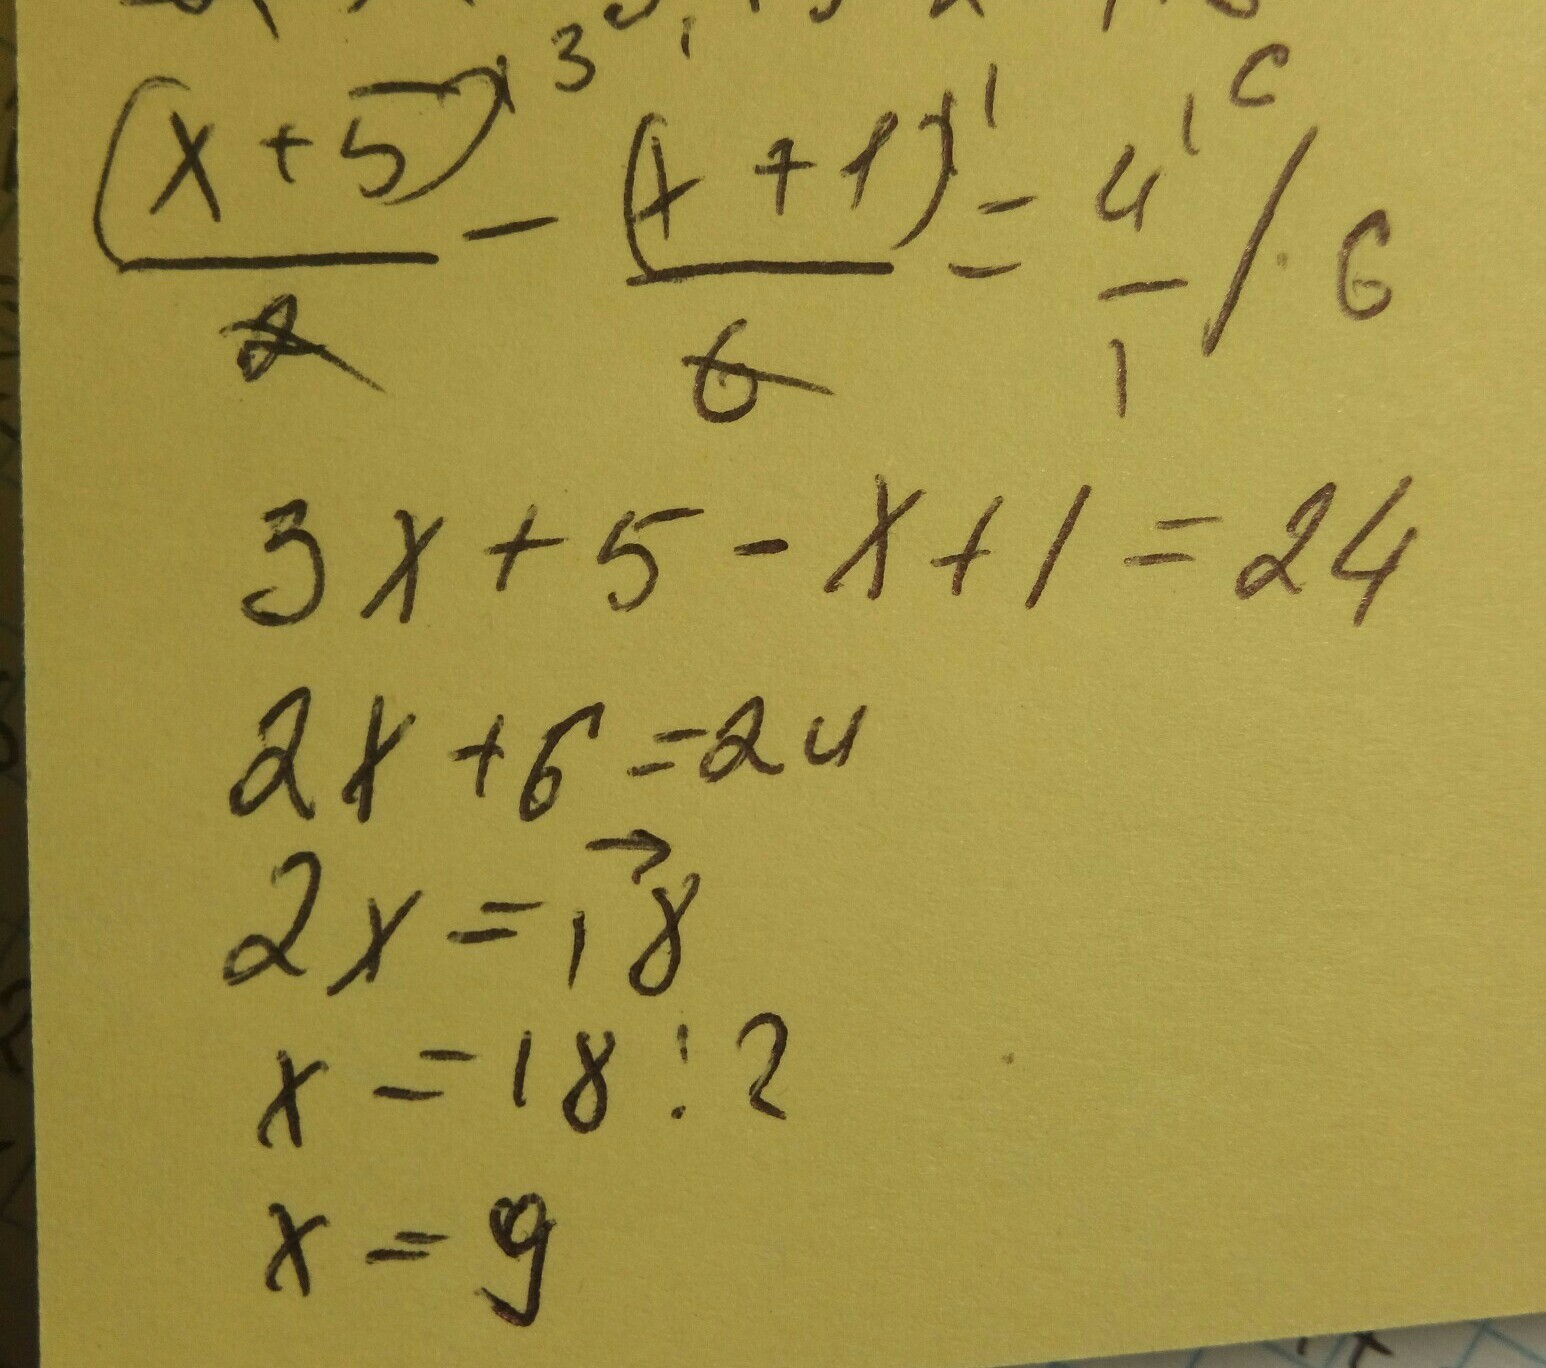 (x+5)^{1 3}/2 - (x+1)^{1 1}/6 = 4^{1 6}/1 / · 6
3x+5-x+1=24
2x+6=24
2x=18
x=18:2
x=9